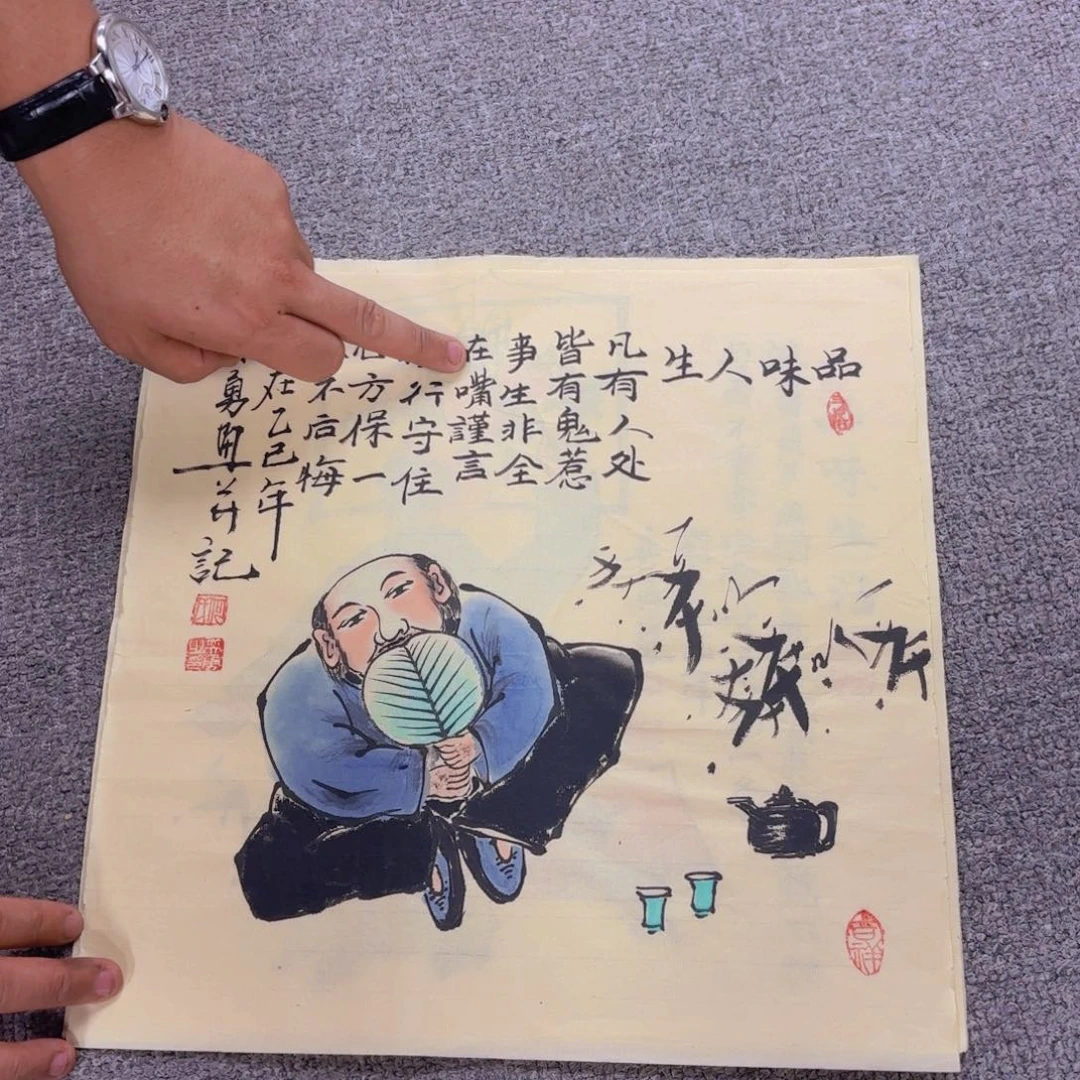 品味人生
凡有人处
皆有鬼惹
事生非全
在嘴謹言
行守住
方保一
不后悔
在乙巳年
勇画并記
吉祥